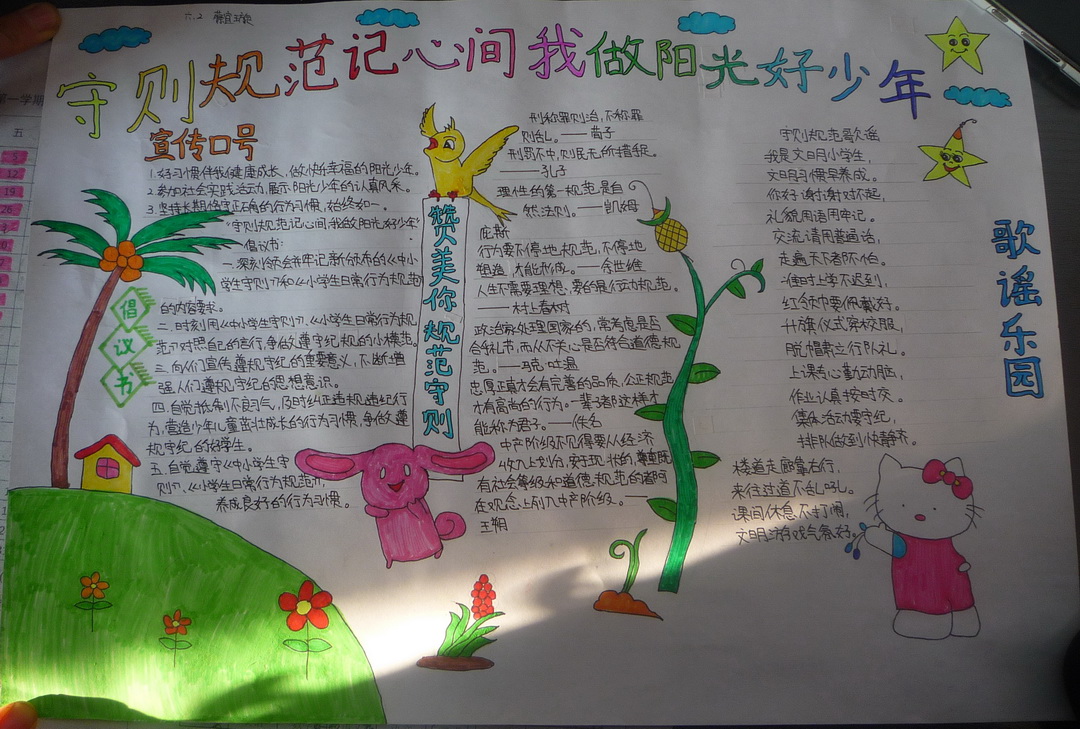 六.2
守则规范记心间我做阳光好少年
宣传口号
1.好习惯伴我健康成长,做快乐幸福的阳光少年。
2.参加社会实践活动,展示阳光少年的认真风采。
3.坚持长期恪守正确的行为习惯,始终如一。
"守则规范记心间·我做阳光好少年"
倡议书:
一.深刻领会并牢记新颁布的《中小
学生守则》和《小学生日常行为规范》
的内容要求。
二.时刻用《中小学生守则》,《小学生日常行为规
范》对照自己的言行,争做遵守纪规的小模范。
三.向人们宣传遵规守纪的重要意义,不断增
强人们遵规守纪的思想意识。
四.自觉抵制不良习气,及时纠正违规违纪行
为,营造少年儿童茁壮成长的行为习惯,争做遵
规守纪的好学生。
五.自觉遵守《中小学生守
则》,《小学生日常行为规范》,
养成良好的行为习惯。
倡议书
赞美你规范守则
刑称罪则治,不称罪
则乱。——荀子
刑罚不中,则民无所措手足。
——孔子
理性的第一规范是自
然法则。——凯姆
陀斯
行为要不停地规范,不停地
塑造,才能 。——徐世维
人生不需要理想,要的是行动规范。
——村上春树
政治家处理国家的,常考虑是否
合乎礼节,而从不关心是否符合道德规
范。——马克·吐温
忠厚正直才会有完善的品质,公正规范
才有高尚的行为。一辈子都这样才
能称为君子。——佚名
中产阶级不见得要从经济
收入上划分,安于现状的,尊重既
有社会等级和道德规范的都可
在观念上列入中产阶级。——
王朔
守则规范歌谣
我是文明小学生,
文明习惯早养成。
你好谢谢对不起,
礼貌用语用牢记。
交流请用普通话,
走遍天下都不怕。
准时上学不迟到,
红领巾要佩戴好。
升旗仪式穿校服,
脱帽肃立行队礼。
上课专心勤动脑,
作业认真按时交。
集体活动要守纪,
排队做到快静齐。
楼道走廊靠右行,
来往过道不乱吼。
课间休息不打闹,
文明游戏气氛好。
歌谣乐园